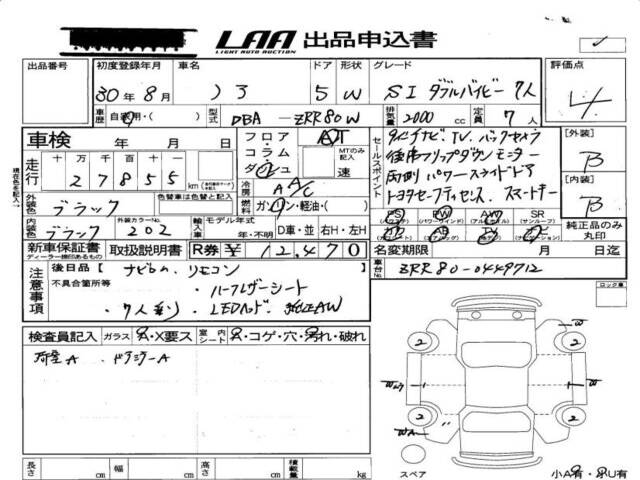 LAA 出品申込書
LIGHT AUTO AUCTION
出品番号 初度登録年月 車名 ドア 形状 グレード 評価点
30年8月 ノア 5 W SI ダブルバイビー 7人 4
車歴 自家用・( ) 型式 DBA-ZRR80W 排気量 2000cc 定員 7人
車検 年 月 日 フロア・コラム・ダ AT MTのみ記入 速
現車色名を記入→
走行 十万 万 千 百 十 一
27855 km
冷房 A A/C
セールスポイント
9インチナビ、TV、バックカメラ
後席フリップダウンモニター
両側パワースライドドア
トヨタセーフティセンス、スマートキー
外装色 ブラック 色替車は色替と記入 燃料 ガソリン・軽油・( )
内装色 ブラック 外装カラーNo. 202 輸入車 モデル年式 年・不明 D車・並 右H・左H
PS (パワステ) PW (パワーウィンドウ) AW (アルミホイル) SR (サンルーフ)
純正品のみ丸印
[外装] B
[内装] B
新車保証書 ディーラー捺印あるもの 取扱説明書 R券 ¥12,470 名変期限 月 日迄
注意事項
後日品 【 ナビrom、リモコン
不具合箇所等 ・ハーフレザーシート
・7人乗り ・LEDヘッド、純正AW
車台No. ZRR80-0449712
ロック車
検査員記入 ガラス A・X要ス 室内シート A・コゲ・穴・汚れ・破れ
荷室A、ドアミラーA
W
2 2
1 1
2 2
スペア
長さ cm 幅 cm 高さ cm 積載量 kg
小A有・小U有